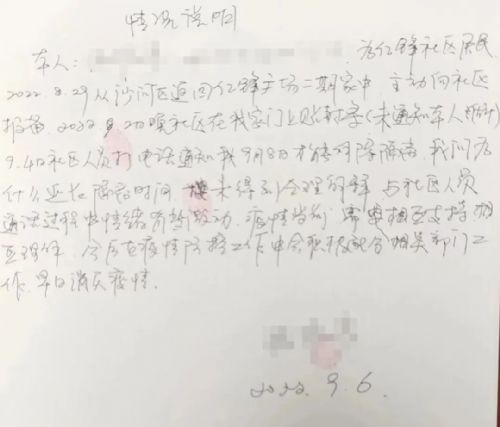 情况说明
本人: 为亿锋社区居民
2022.8.29从沙河区返回亿锋广场二期家中 主动向社区
报备. 2022 9.2日晚社区在我家门上贴封条(未通知本人
9.4日社区人员打电话通知我9月8日才能解除隔离 我问为
什么延长隔离时间 未得到合理的解释 与社区人员
通话过程中情绪有些激动. 疫情当前 需要相互支持 相
互理解. 今后在疫情防控工作中会积极配合相关部门工
作. 早日消灭疫情.
2022. 9. 6.